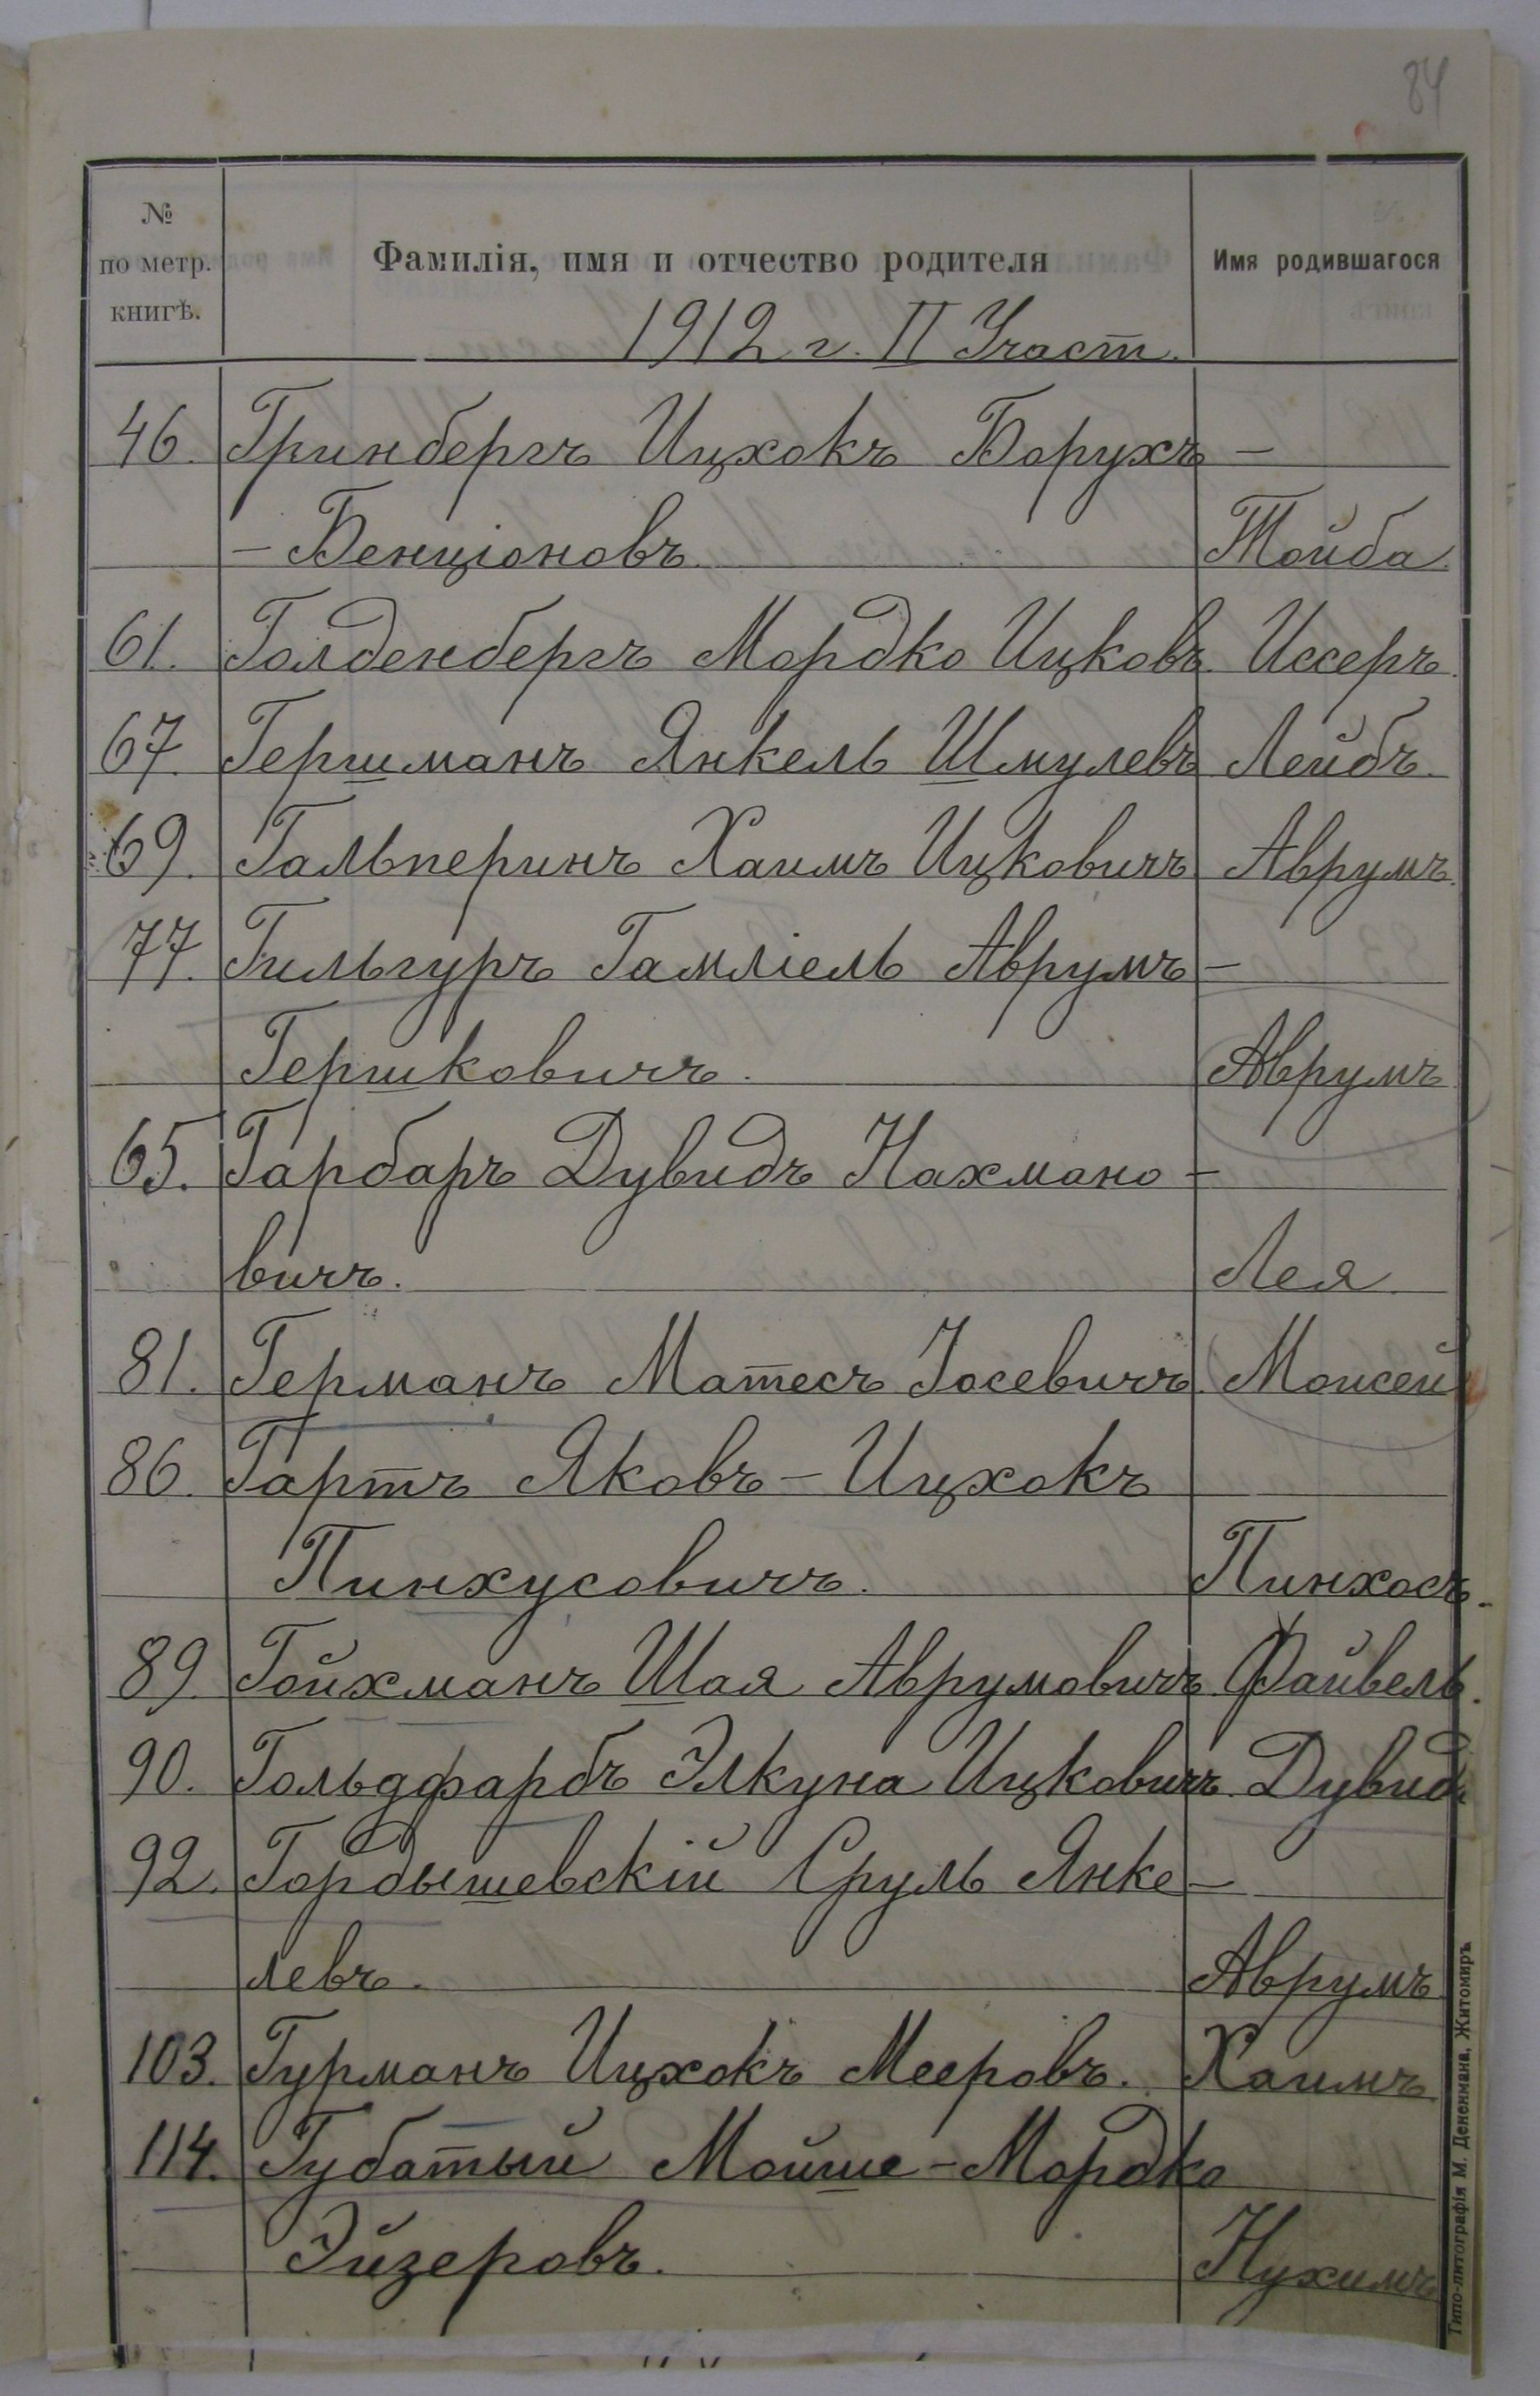 84
№
по метр.
книгѣ.
Фамилія, имя и отчество родителя
Имя родившагося
1912 г. II Участ.
46. Гринбергъ Ицхокъ Борухъ -
- Бенціоновъ. Тойба.
61. Голденбергъ Мордко Ицковъ. Иссеръ.
67. Гершманъ Янкель Шмулевъ Лейбъ.
69. Гальперинъ Хаимъ Ицковичъ Аврумъ.
77. Гильгуръ Гамліель Аврумъ -
Гершковичъ. Аврумъ
65. Гарбаръ Дувидъ Нахмано -
вичъ. Лея.
81. Германъ Матесъ Іосевичъ. Моисей
86. Гартъ Яковъ - Ицхокъ
Пинхусовичъ. Пинхосъ.
89. Гойхманъ Шая Аврумовичъ. Файвель.
90. Гольдфарбъ Элкуна Ицковичъ. Дувидъ
92. Гордышевскій Сруль Янке -
левъ. Аврумъ
103. Гурманъ Ицхокъ Мееровъ. Хаимъ.
114. Губатый Мойше - Мордко
Эйзеровъ. Нухимъ
Типо-литографія М. Дененмана, Житомиръ